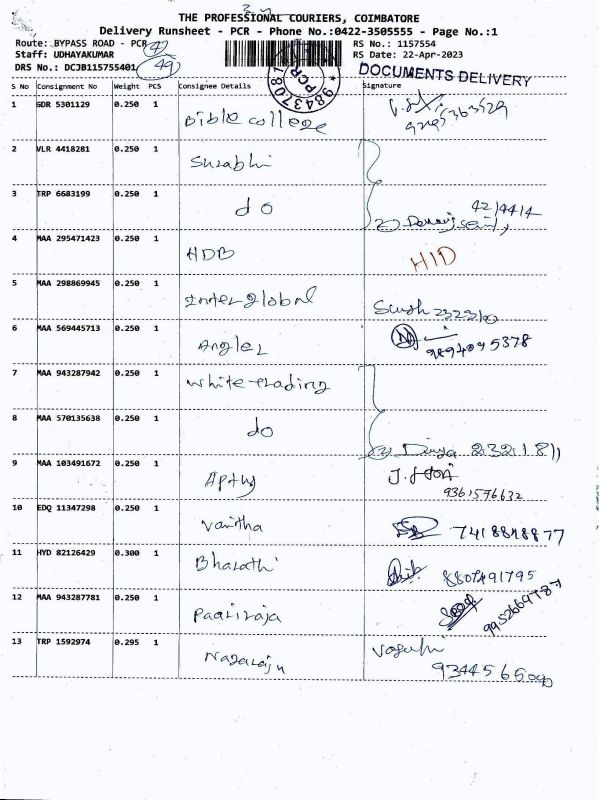 THE PROFESSIONAL COURIERS, COIMBATORE
Delivery Runsheet - PCR - Phone No.:0422-3505555 - Page No.:1
Route: BYPASS ROAD - PCR
RS No.: 1157554
Staff: UDHAYAKUMAR
RS Date: 22-Apr-2023
DRS No.: DCJB115755401
49
DOCUMENTS DELIVERY
PCR
S No Consignment No Weight PCS Consignee Details Signature
1 GDR 5301129 0.250 1 Bible college
2 VLR 4418281 0.250 1 Surabhi
3 TRP 6683199 0.250 1 do
4 MAA 295471423 0.250 1 HDB HID
5 MAA 298869945 0.250 1 Inter global
6 MAA 569445713 0.250 1 Anglez
9894095378
7 MAA 943287942 0.250 1 White trading
8 MAA 570135638 0.250 1 do
Divya 232181
9 MAA 103491672 0.250 1 Apthy
9361576632
10 EDQ 11347298 0.250 1 Vanitha 7418848877
11 HYD 82126429 0.300 1 Bharathi 8807491795
12 MAA 943287781 0.250 1 Paariraja
9952669787
13 TRP 1592974 0.295 1 Nagaraju